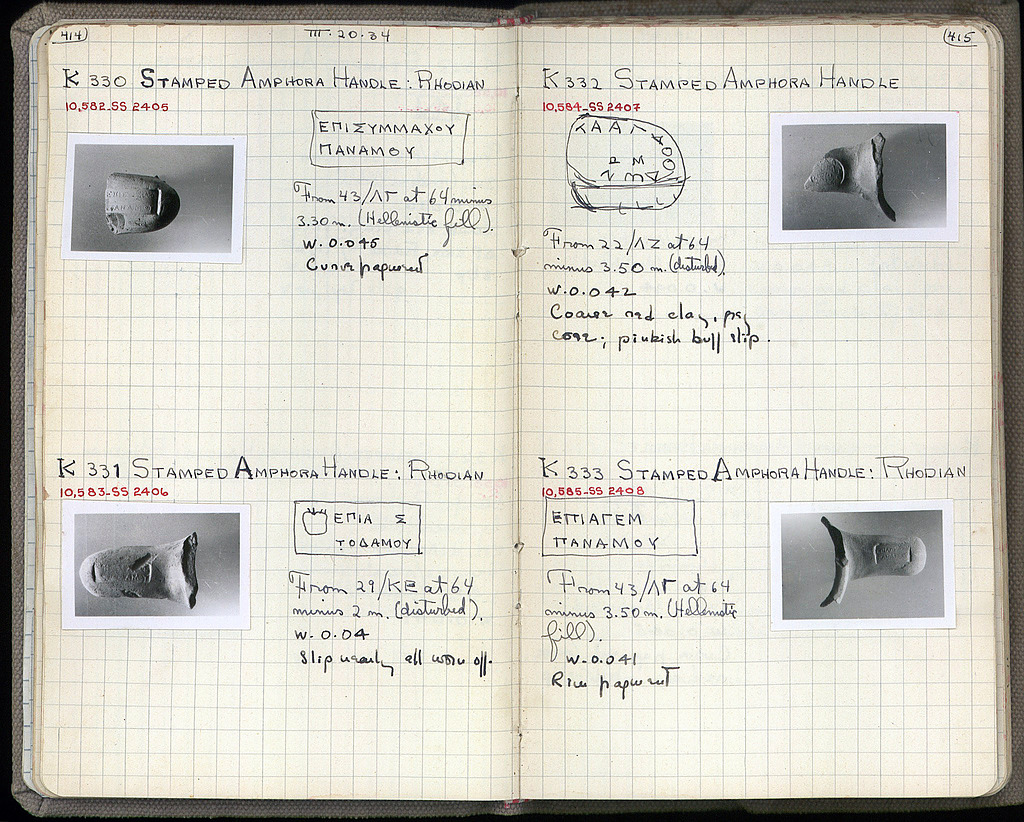 414
III·20·34
K 330 STAMPED AMPHORA HANDLE: RHODIAN
10,582-SS 2405
ΕΠΙΣΥΜΜΑΧΟΥ
ΠΑΝΑΜΟΥ
From 43/ΛΓ at 64 minus
3.30 m. (Hellenistic fill).
W. 0.045
Curve fragment
K 331 STAMPED AMPHORA HANDLE: RHODIAN
10,583-SS 2406
ΕΠΙΑ Σ
ΤΟΔΑΜΟΥ
From 29/ΚΕ at 64
minus 2 m. (disturbed).
W. 0.04
Slip nearly all worn off.
415
K 332 STAMPED AMPHORA HANDLE
10,584-SS 2407
From 22/ΛΖ at 64
minus 3.50 m. (disturbed).
W. 0.042
Coarse red clay, grey
core; pinkish buff slip.
K 333 STAMPED AMPHORA HANDLE: RHODIAN
10,585-SS 2408
ΕΠΙΑΓΕΜ
ΠΑΝΑΜΟΥ
From 43/ΛΓ at 64
minus 3.50 m. (Hellenistic
fill).
W. 0.041
Rim fragment